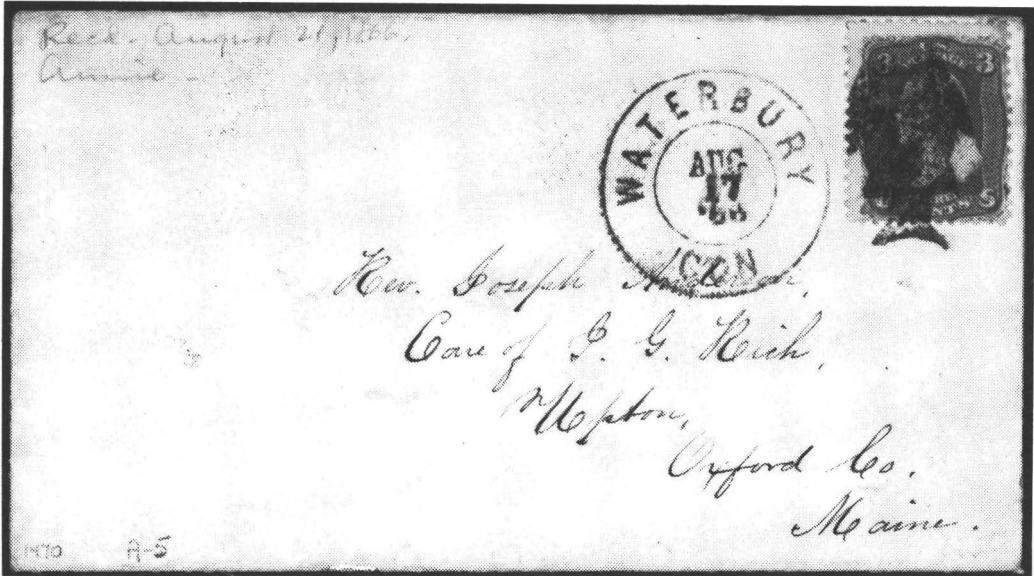 Recd. August 21, 1866.
Annie -
WATERBURY
AUG
17
'66
CON
3 3
Rev. Joseph Anderson,
Care of J. G. Rich,
Upton,
Oxford Co.
Maine.
1470 A-5